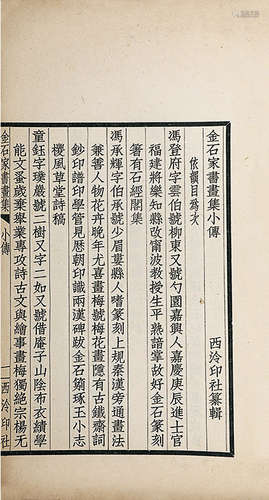 金石家書畫集小傳
西泠印社纂輯
依韻目爲次
馮登府字雲伯號柳東又號勺園嘉興人嘉慶庚辰進士官
福建將樂知縣改甯波教授生平熟諳掌故好金石篆刻
著有石經閣集
馮承輝字伯承號少眉婁縣人嗜篆刻上規秦漢旁通畫法
兼善人物花卉晚年尤喜畫梅號梅花畫隱有古鐵齋詞
鈔印譜印學管見歷朝印識兩漢碑跋金石瑣琢玉小志
稷風草堂詩稿
童鈺字璞巖號二樹又字二如又號借庵子山陰布衣績學
能文蚤歲棄舉業專攻詩古文與繪事畫梅獨絕宗楊无
金石家書畫集 小傳 一 西泠印社